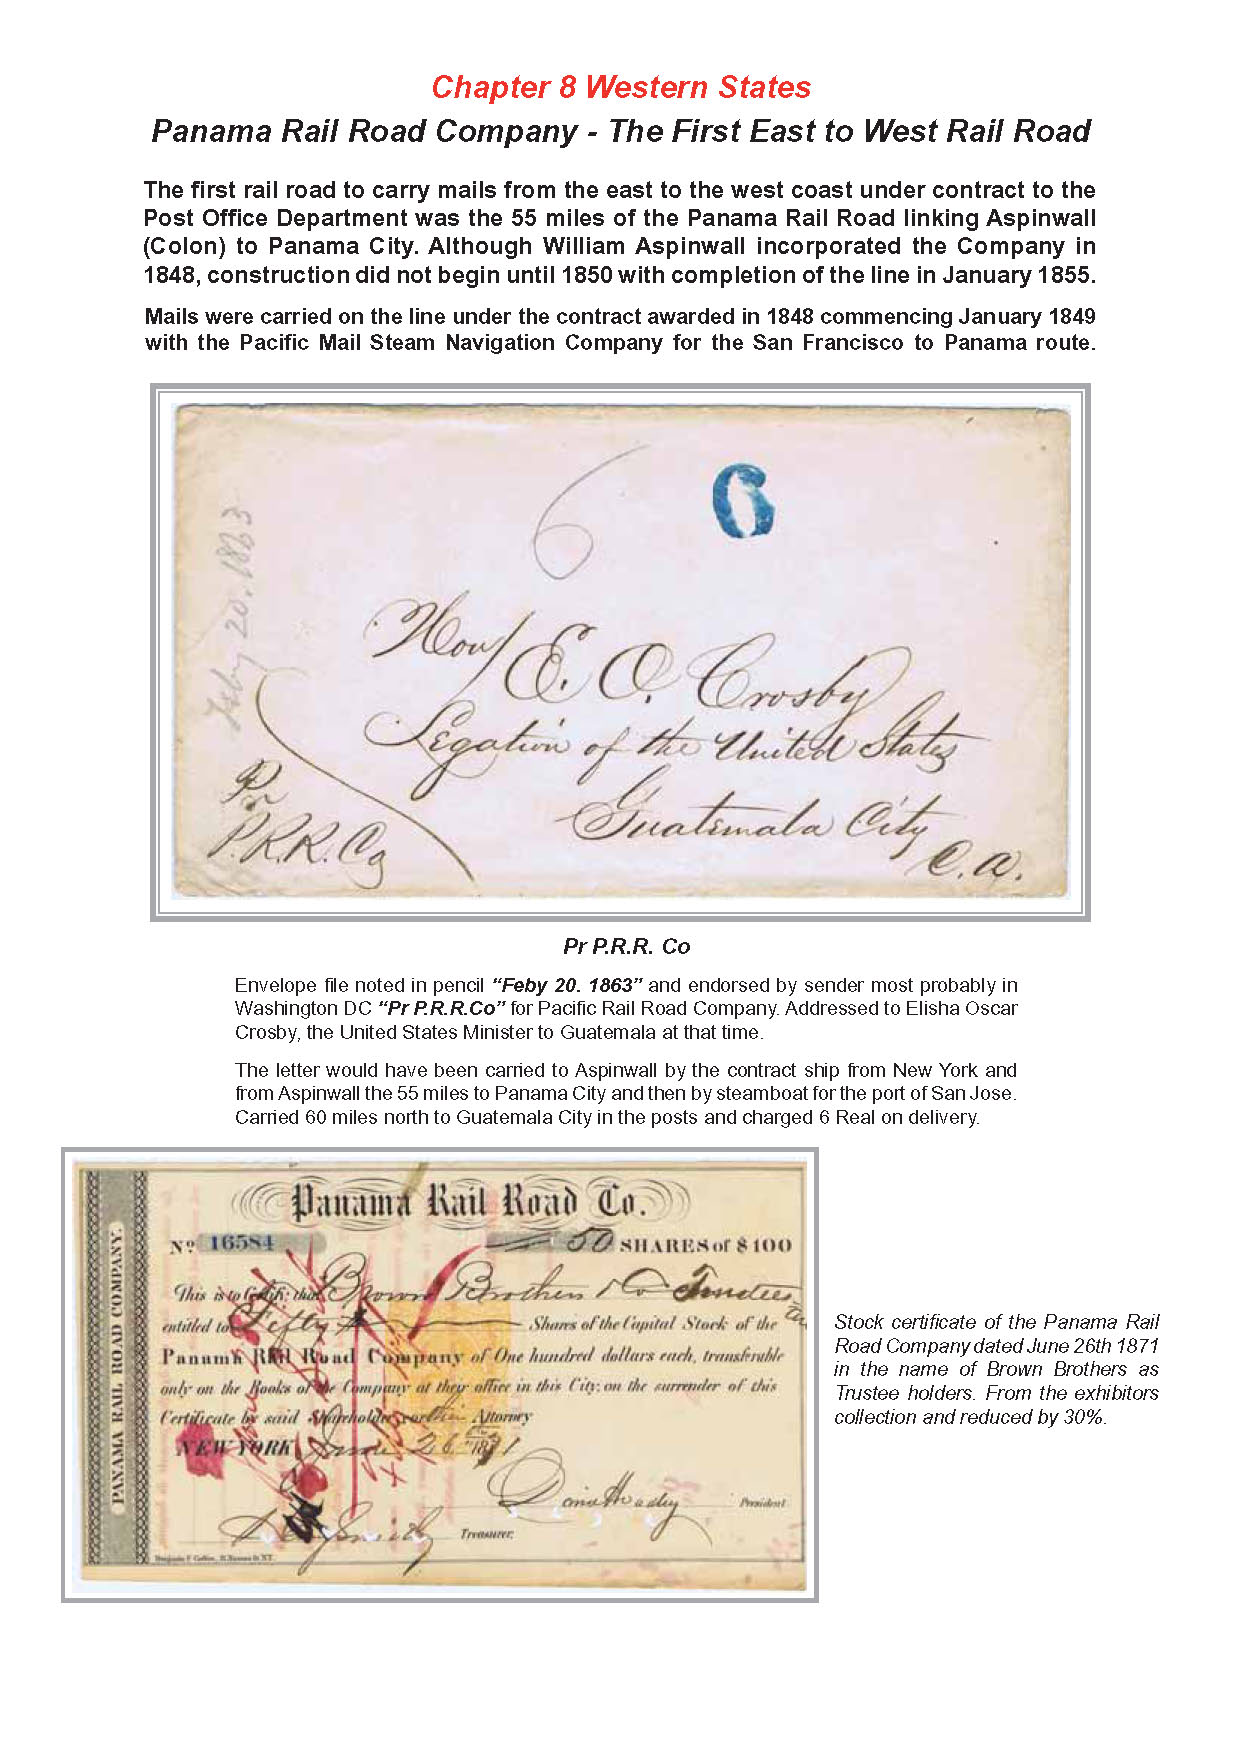 Chapter 8 Western States
Panama Rail Road Company - The First East to West Rail Road
The first rail road to carry mails from the east to the west coast under contract to the
Post Office Department was the 55 miles of the Panama Rail Road linking Aspinwall
(Colon) to Panama City. Although William Aspinwall incorporated the Company in
1848, construction did not begin until 1850 with completion of the line in January 1855.
Mails were carried on the line under the contract awarded in 1848 commencing January 1849
with the Pacific Mail Steam Navigation Company for the San Francisco to Panama route.
6
6
Feby 20. 1863
Hon E. O. Crosby
Legation of the United States
Guatemala City
C.A.
Pr
P.R.R. Co
Pr P.R.R. Co
Envelope file noted in pencil “Feby 20. 1863” and endorsed by sender most probably in
Washington DC “Pr P.R.R.Co” for Pacific Rail Road Company. Addressed to Elisha Oscar
Crosby, the United States Minister to Guatemala at that time.
The letter would have been carried to Aspinwall by the contract ship from New York and
from Aspinwall the 55 miles to Panama City and then by steamboat for the port of San Jose.
Carried 60 miles north to Guatemala City in the posts and charged 6 Real on delivery.
PANAMA RAIL ROAD COMPANY.
Panama Rail Road Co.
No 16584 50 SHARES of $100
This is to Certify that Brown Brothers & Co Trustees
entitled to Fifty Shares of the Capital Stock of the
Panama Rail Road Company of One hundred dollars each, transferable
only on the Books of the Company at their office in this City; on the surrender of this
Certificate by said Shareholder or their Attorney
NEW YORK June 26 1871
President
Treasurer.
Stock certificate of the Panama Rail
Road Company dated June 26th 1871
in the name of Brown Brothers as
Trustee holders. From the exhibitors
collection and reduced by 30%.